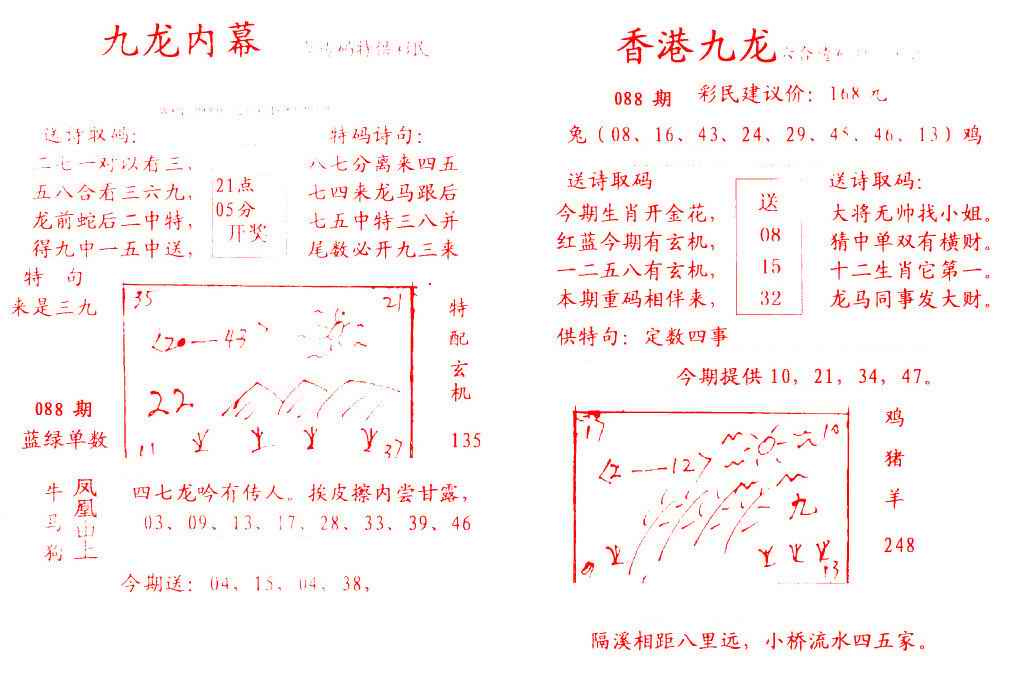 九龙内幕
送诗取码：
二七一对以有三，
五八合有三六九，
龙前蛇后二中特，
得九中一五中送，
特句
来是三九
21点
05分
开奖
特码诗句：
八七分离来四五
七四来龙马跟后
七五中特三八并
尾数必开九三来
35 21
20—43
22
11 37
特配玄机
135
088期
蓝绿单数
牛马狗
凤凰中上
四七龙吟有传人。挨皮擦内尝甘露，
03、09、13、17、28、33、39、46
今期送：04、15、04、38，
香港九龙
088期 彩民建议价：168元
兔（08、16、43、24、29、45、46、13）鸡
送诗取码
今期生肖开金花，
红蓝今期有玄机，
一二五八有玄机，
本期重码相伴来，
送
08
15
32
送诗取码：
大将无帅找小姐。
猜中单双有横财。
十二生肖它第一。
龙马同事发大财。
供特句：定数四事
今期提供10，21，34，47。
17 10
〈2—12〉
九
鸡
猪
羊
248
隔溪相距八里远，小桥流水四五家。